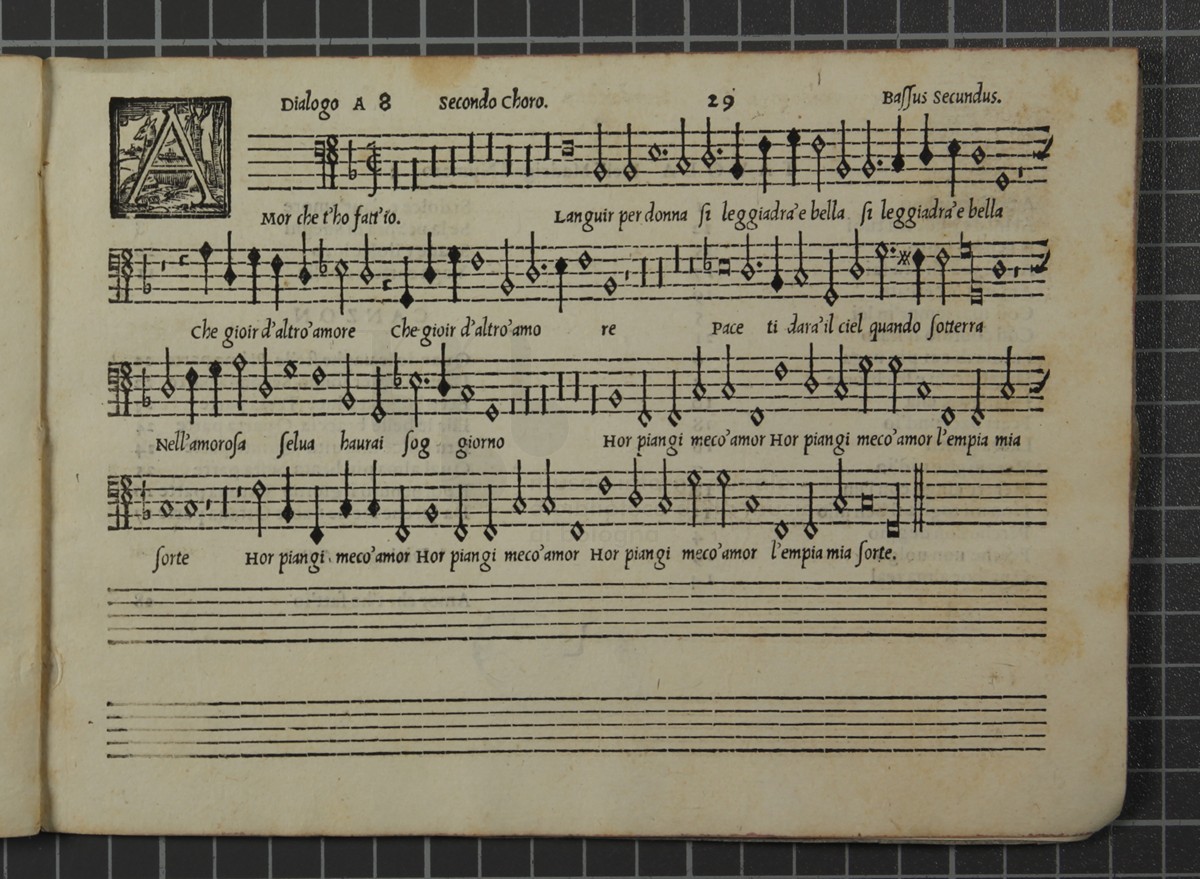 Dialogo A 8 Secondo Choro. 29 Baſſus Secundus.
A
Mor che t'ho fatt'io. Languir per donna ſi leggiadra'e bella ſi leggiadra'e bella
Che gioir d'altro'amore Che gioir d'altro'amo re Pace ti dara'il ciel quando ſotterra
Nell'amoroſa ſelua haurai ſog giorno Hor piangi meco'amor Hor piangi meco'amor l'empia mia
ſorte Hor piangi meco'amor Hor piangi meco'amor Hor piangi meco'amor l'empia mia ſorte.